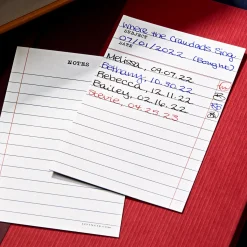 Where the Crawdads Sing
SUBJECT
07/01/2022 (Bought)
DATE
Melissa, 09.07.22
Bethany, 10.30.22
Rebecca, 12.11.22
Bailey, 02.16.22
Stevie, 04.27.23
NOTES